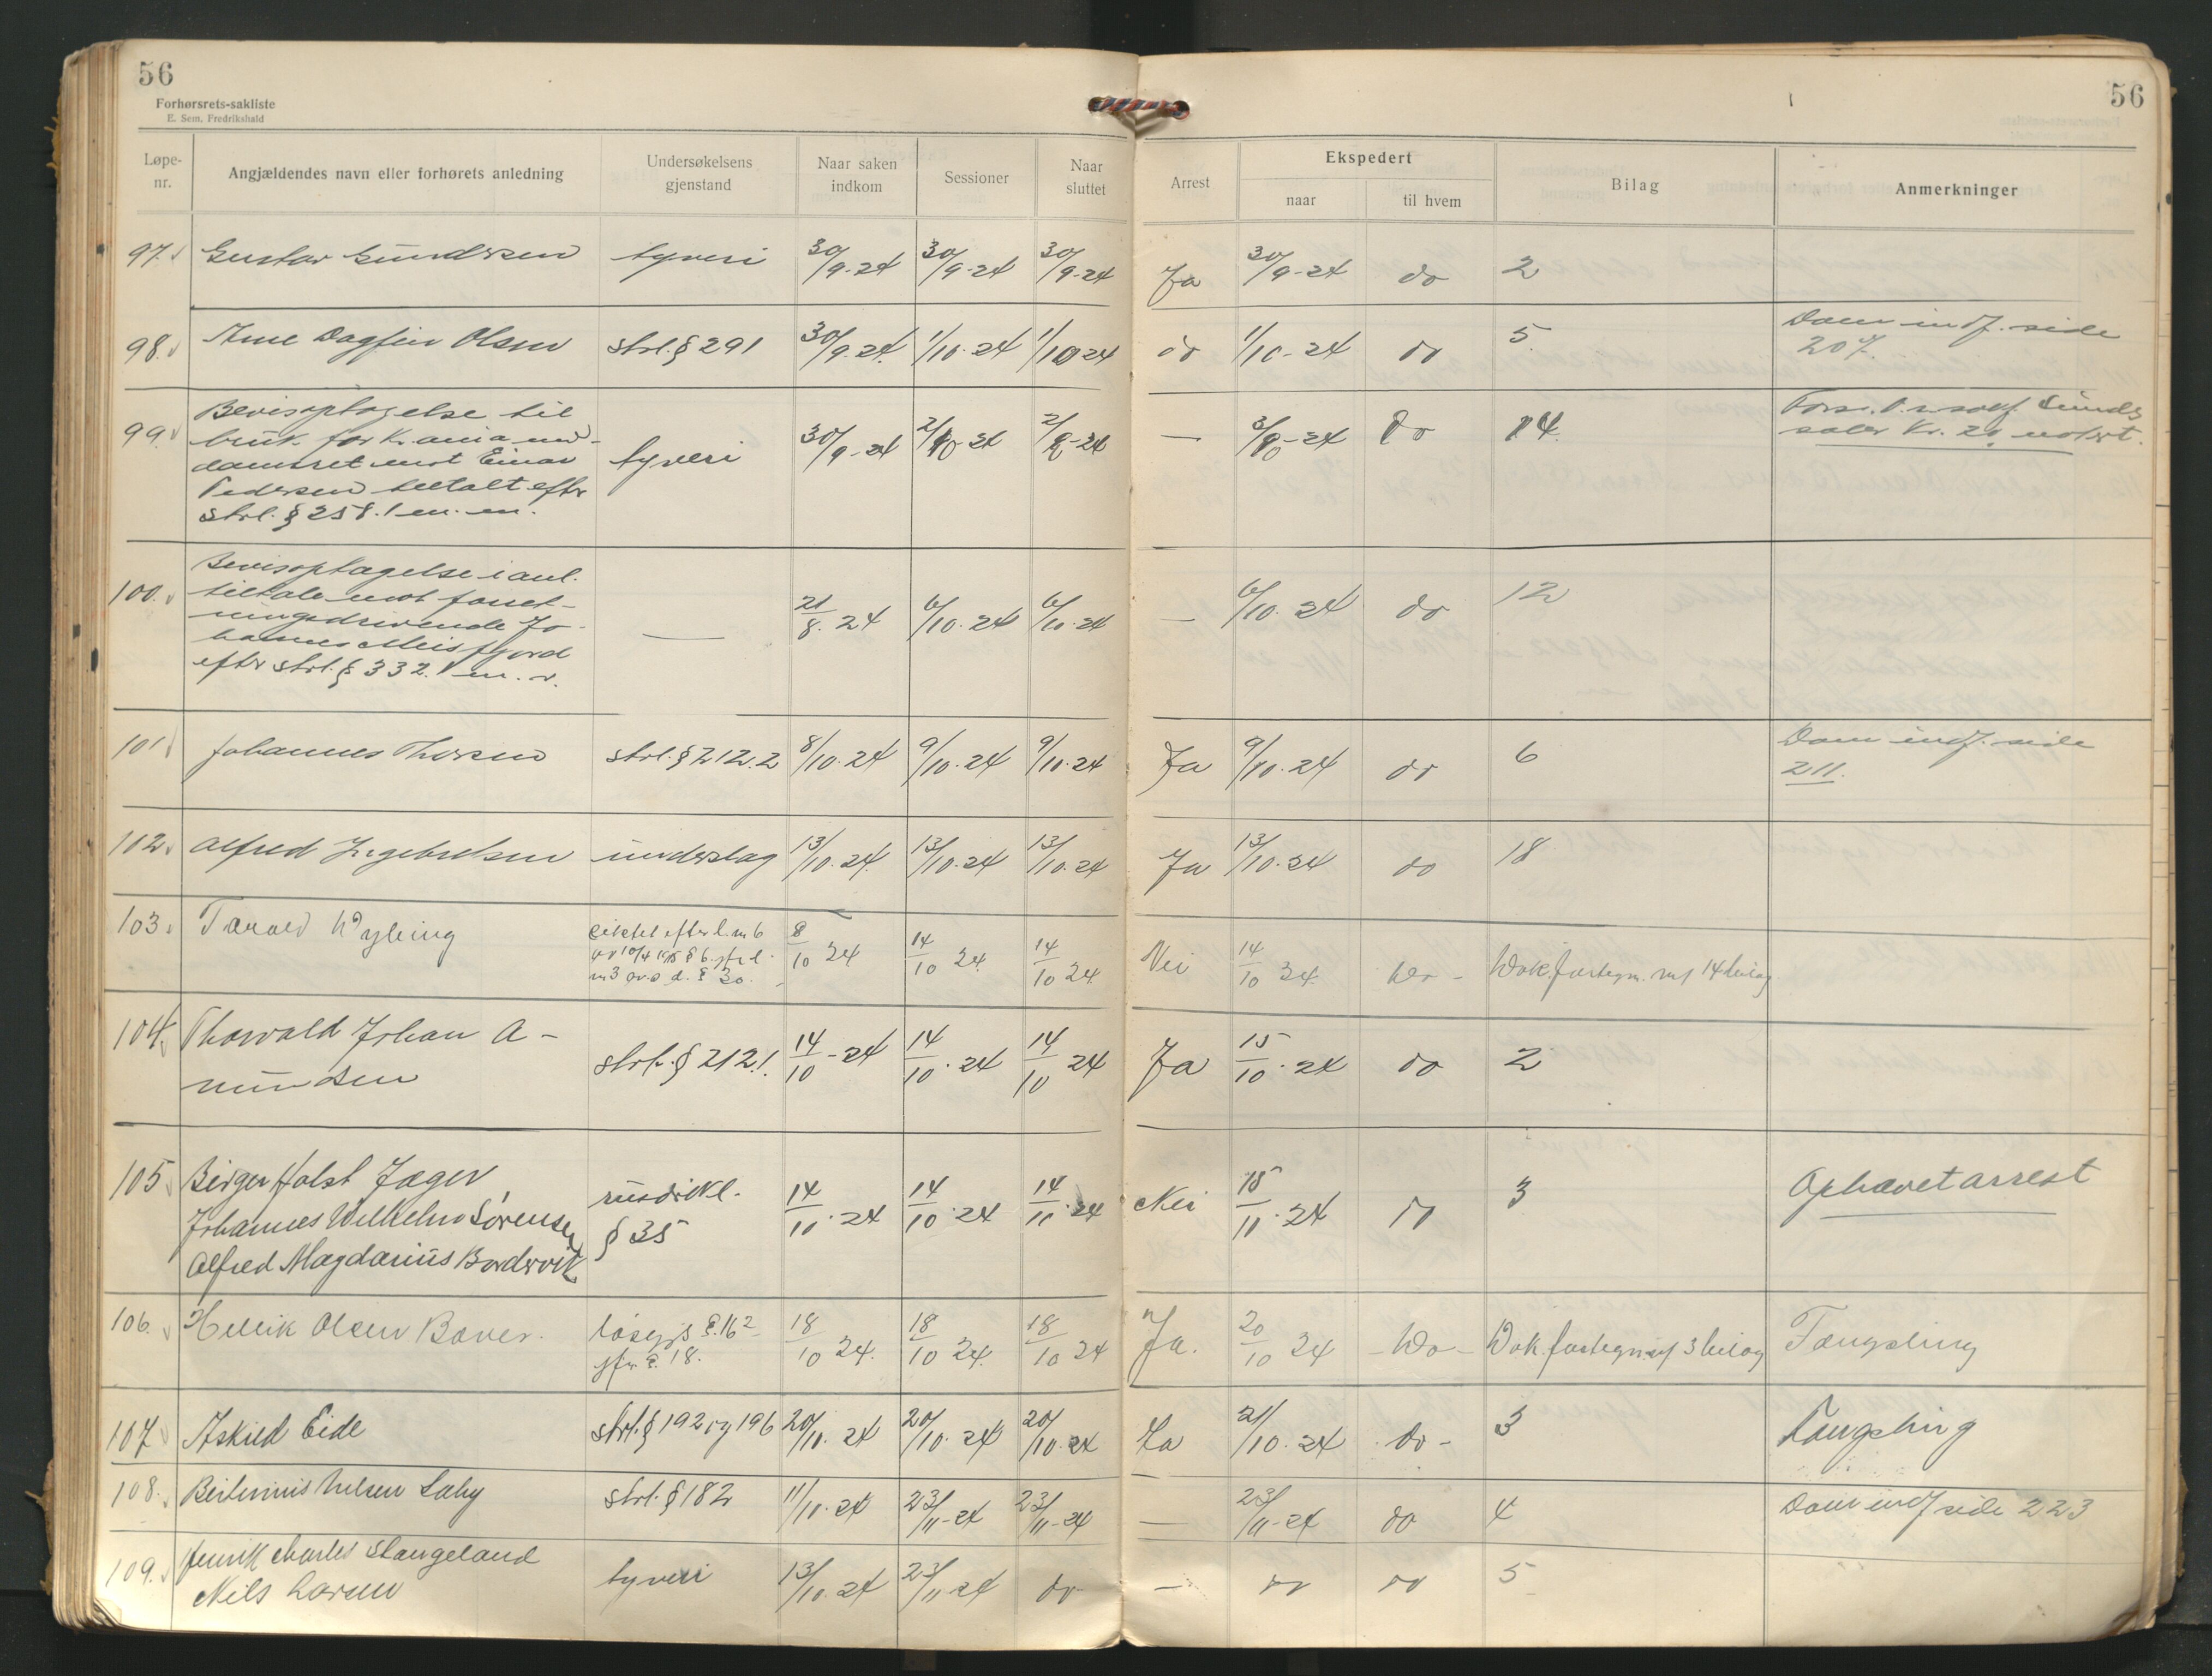 56
Forhørsrets-sakliste
E. Sem, Fredrikshald
56
Løpe-nr.
Angjældendes navn eller forhørets anledning
Undersøkelsens gjenstand
Naar saken indkom
Sessioner
Naar sluttet
Arrest
Ekspedert
naar
til hvem
Bilag
Anmerkninger
97. Gustav Gundersen tyveri 30/9-24 30/9-24 30/9-24 Ja 30/9-24 do 2
98. Arne Dagfin Olsen strl. § 291 30/9-24. 1/10-24 1/10 24 do 1/10-24 do 5. Dom indf. side
207.
99. Bevisoptagelse til
bruk for Kr.ania
mot Einar
Pedersen tiltalt efter
strl. § 258.1 m. m.
tyveri 30/9-24 2/10 24 — 3/10-24 do 14
Kr. 20 notert.
100. Bevisoptagelse i anl.
tiltale mot forret-
ningsdrivende Jo-
hannes Meisfjord
efter strl. § 332.1 m. v.
— 21/8.24 6/10.24 6/10.24 — 6/10.24 do 12
101 Johannes Thorsen strl. § 212.2 8/10.24 9/10.24 9/10.24 Ja 9/10.24 do 6 Dom indf. side
211.
102. Alfred Ingebretsen underslag 13/10.24. 13/10.24 13/10.24 Ja 13/10.24 do 18
103. 8/10 24 14/10 24. 14/10 24. Nei 14/10 24. Do - Dok.fortegn. m/ 14 bilag
jfr l.
104. Thorvald Johan A-
mundsen
strl. § 212.1. 14/10-24 14/10.24 14/10 24 Ja 15/10.24 do 2
105 Birger Holst Jæger
Johannes Wilhelm Sørensen
Alfred Magdarius
§ 35
14/10.24 Nei do 3 Ophævet arrest
106. Henrik Olsen løsgj § 16 2
jfr. § 18.
18/10 24. 18/10 24. 18/10 24 Ja. 20/10 24 - Do - Dok.fortegn. m/ 3 bilag Fængsling
107 Askild Eide strl. § 192 og 196 20/10.24 20/10.24 Ja 21/10.24 - do - 3 Fængsling
108. strl. § 182 11/11.24 23/11-24 23/11-24 — 23/11-24 do 4 Dom indf side 223
109. Henrik Charles Stangeland
Nils Larsen
tyveri 13/10.24 23/11-24 do — do do 5